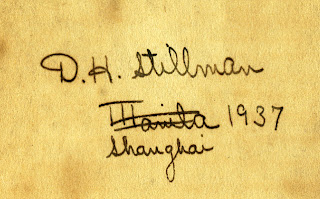 D.H. Stillman
Manila 1937
Shanghai